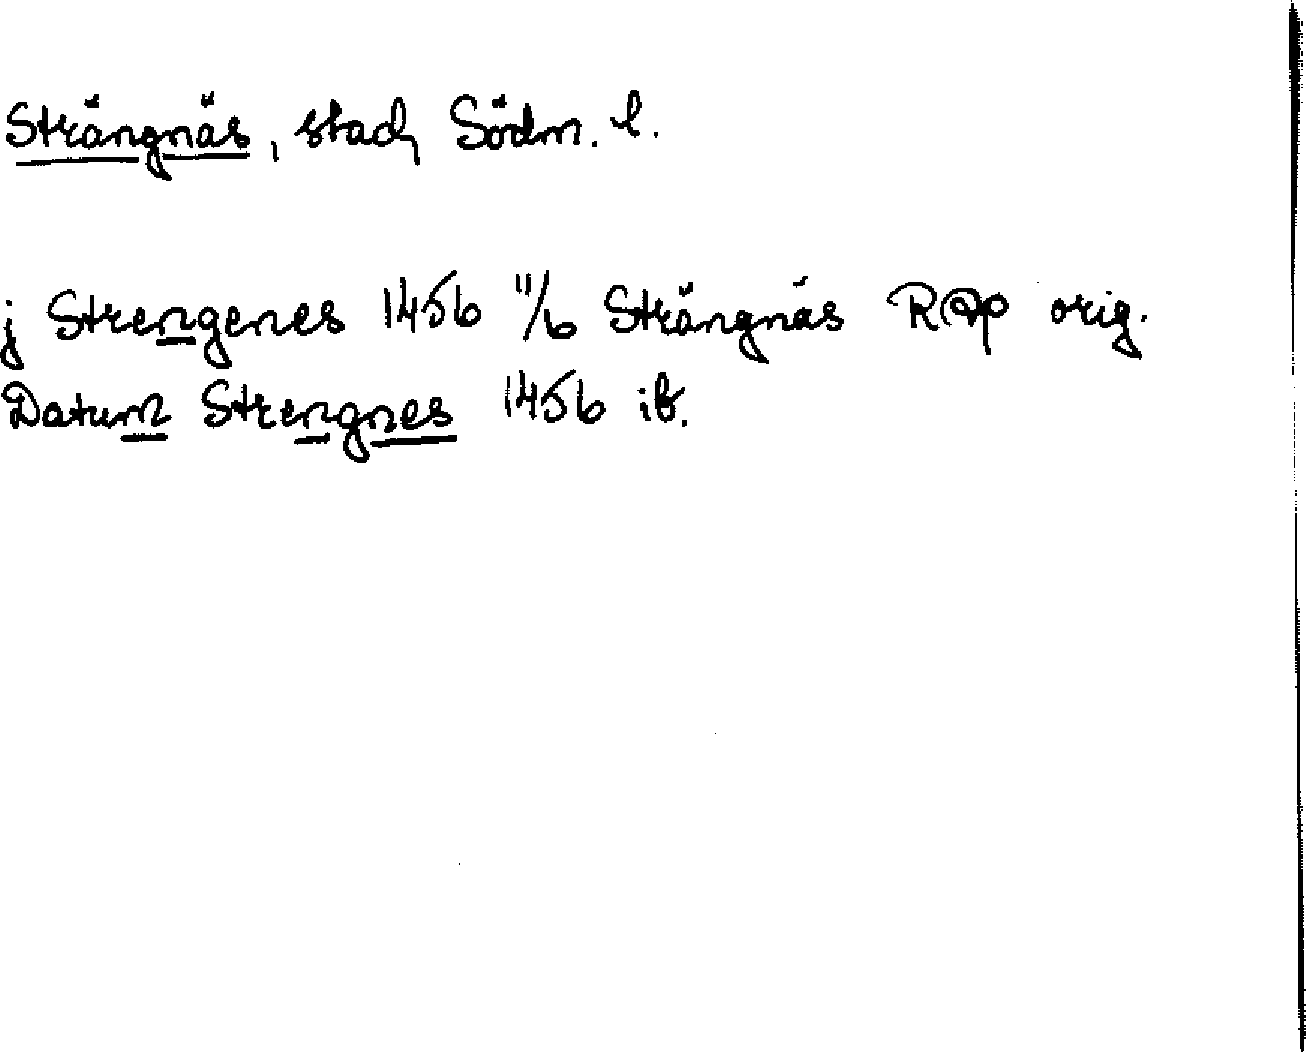 Strängnäs, stad, Södm. l.
j Strengenes 1456 11/6 Strängnäs RAp orig.
Datum Strengnes 1456 ib.